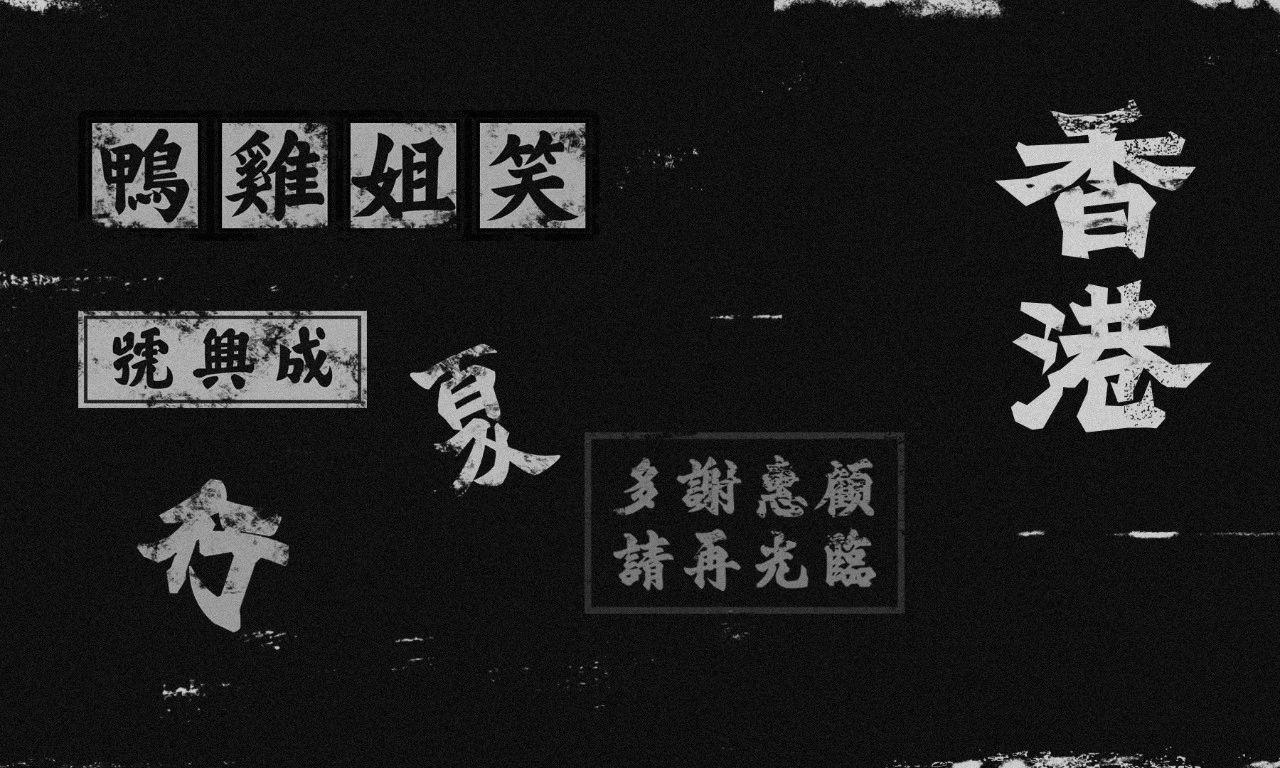 鴨雞姐笑
香港
號興成
夏
多謝惠顧
請再光臨
行